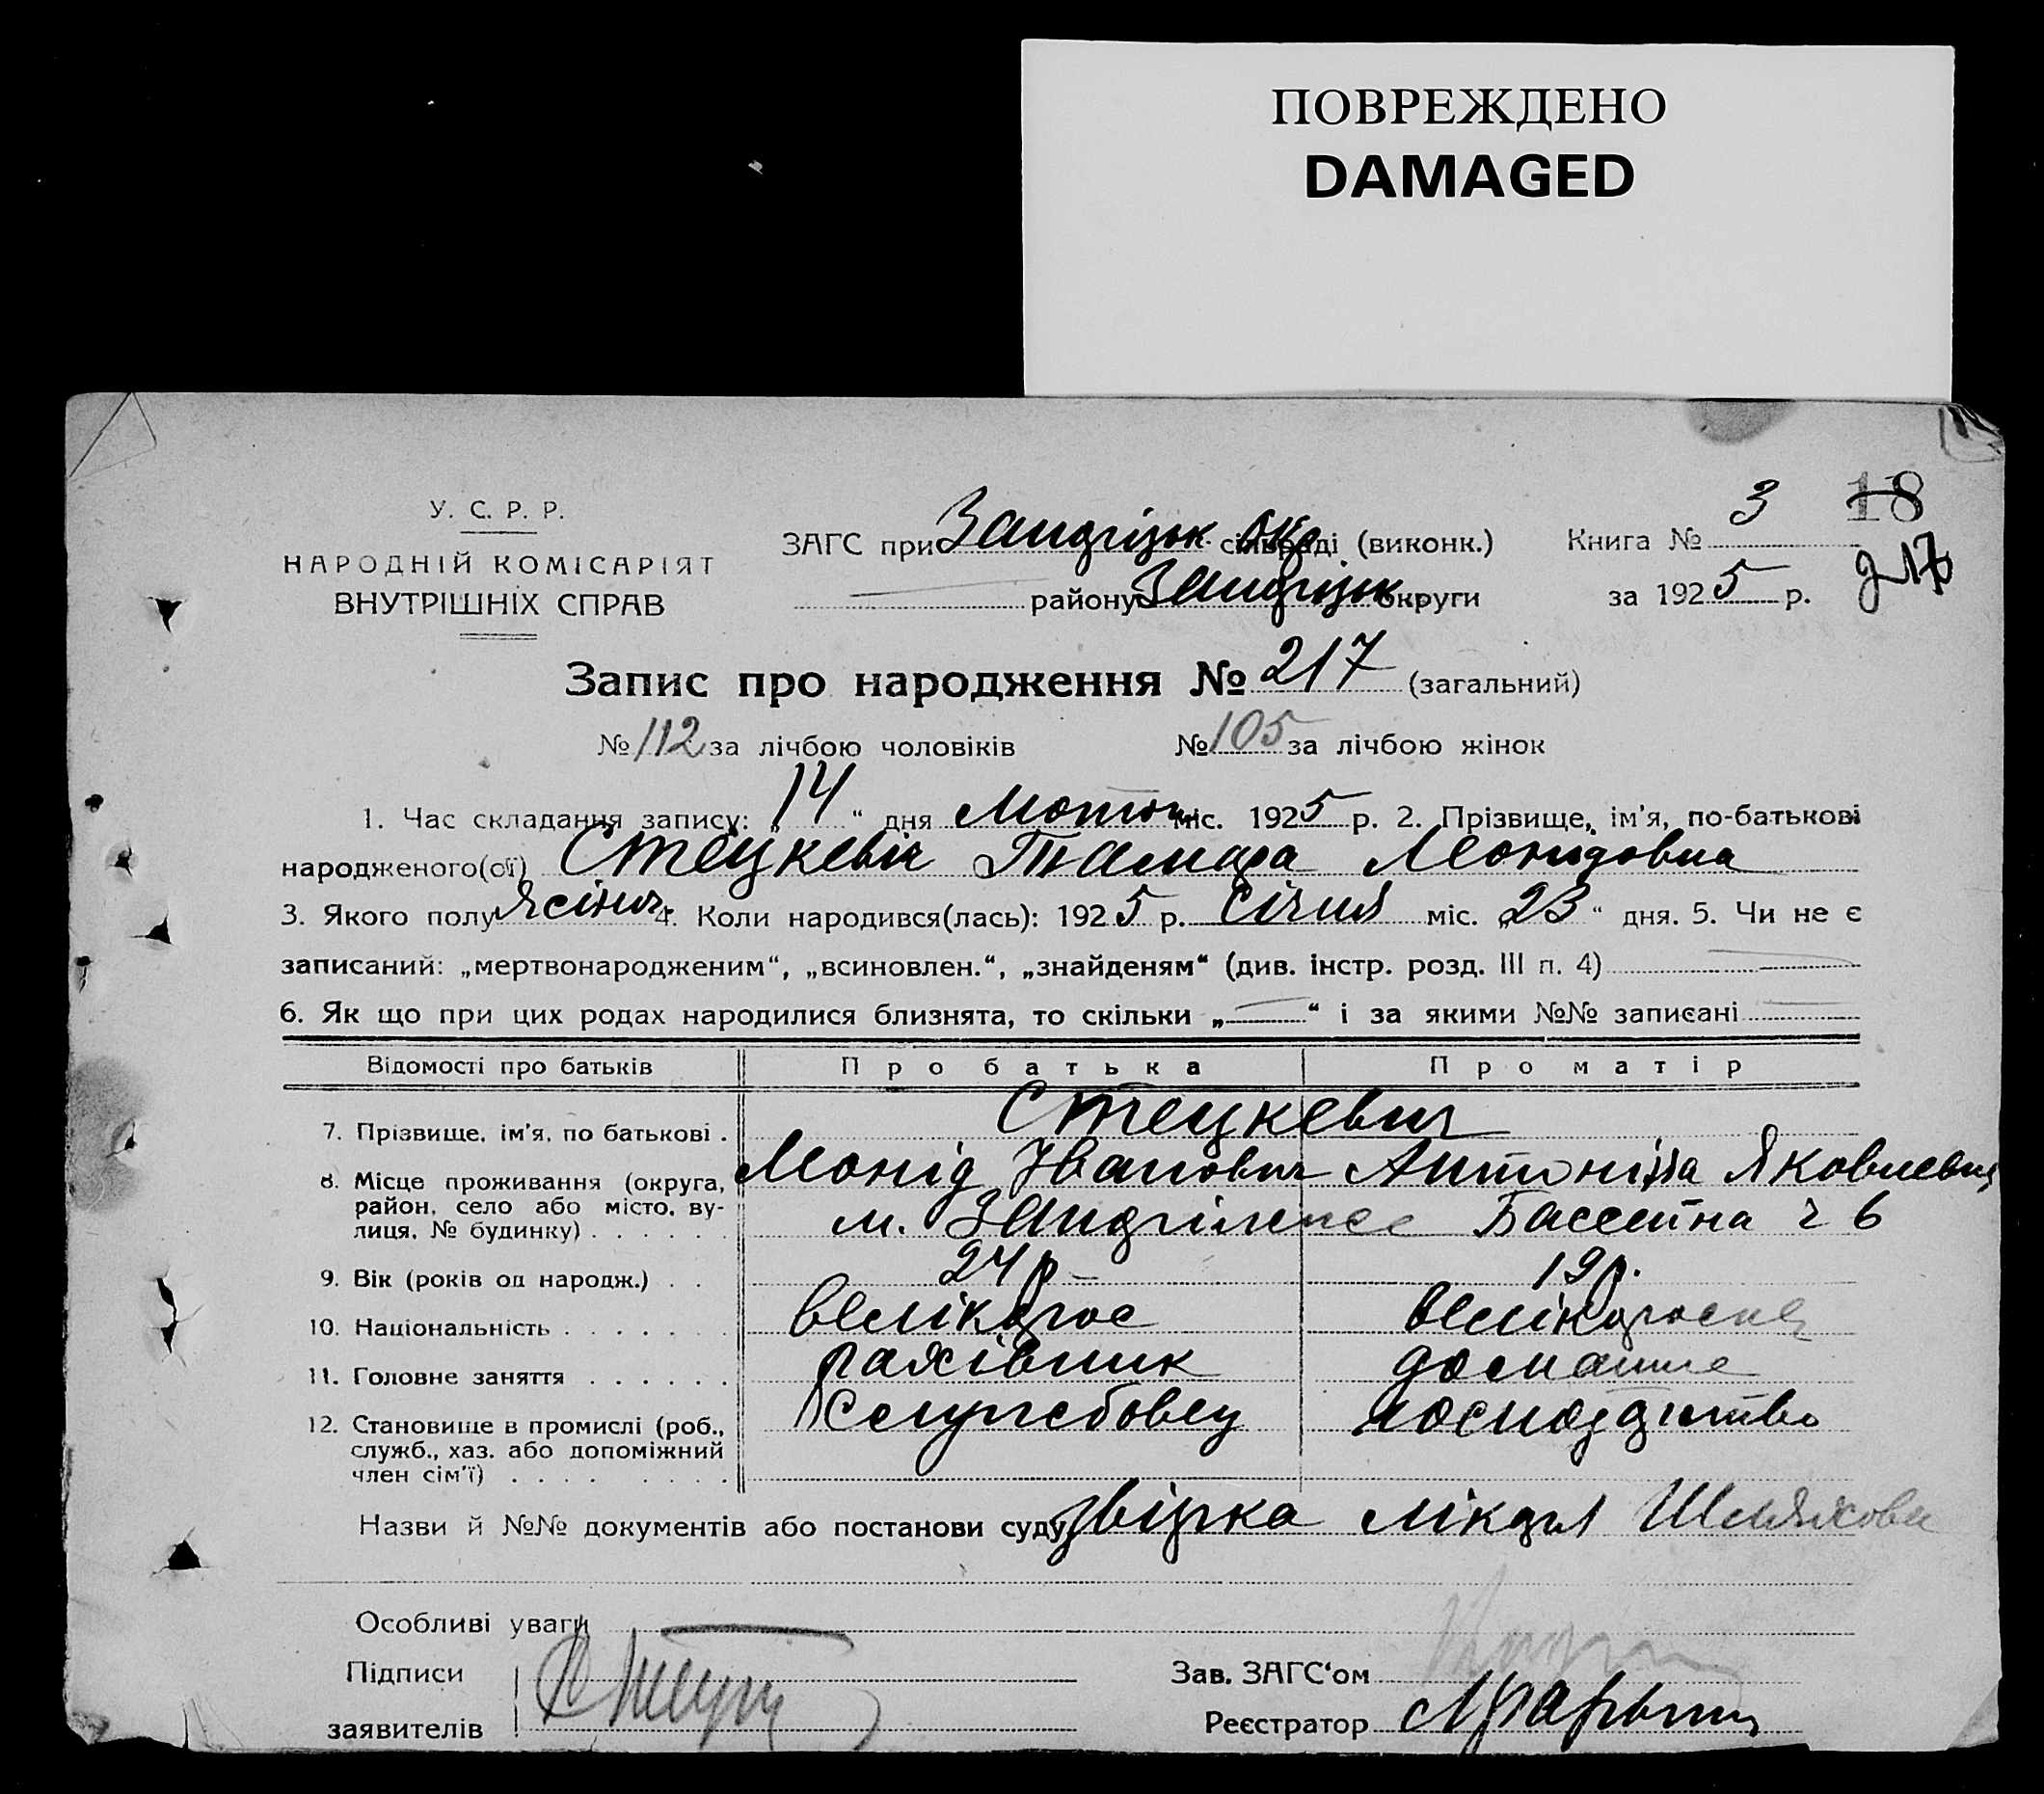 ПОВРЕЖДЕНО
DAMAGED
У. С. Р. Р.
НАРОДНІЙ КОМІСАРІЯТ
ВНУТРІШНІХ СПРАВ
ЗАГС при сільраді (виконк.)
району округи
Книга № 3
18
за 1925 р.
Запис про народження № 217 (загальний)
№ 112 за лічбою чоловіків № 105 за лічбою жінок
1. Час складання запису: „14“ дня міс. 1925 р. 2. Прізвище, ім'я, по-батькові
народженого(ої) Стецкевіч Тамара Леонидовна
3. Якого полу 4. Коли народився(лась): 1925 р. Січня міс. „23“ дня. 5. Чи не є
записаний: „мертвонародженим“, „всиновлен.“, „знайденям“ (див. інстр. розд. III п. 4)
6. Як що при цих родах народилися близнята, то скільки „—“ і за якими №№ записані
Відомості про батьків Про батька Про матір
7. Прізвище, ім'я, по батькові . Стецкевич
Леонід Іванович Антоніна Яковлевна
8. Місце проживання (округа,
район, село або місто, ву-
лиця, № будинку) . . . . . . м. Басейна ч 6
9. Вік (років од народж.) . . 24 р 19 р.
10. Національність . . . . . . . велікорос велікороска
11. Головне заняття . . . . . . рахівник домашне
12. Становище в промислі (роб.,
служб., хаз. або допоміжний
член сім'ї) . . . . . . . . . Служебовец
Назви й №№ документів або постанови суду лікаря
Особливі уваги
Підписи
заявителів
Зав. ЗАГС'ом
Реєстратор